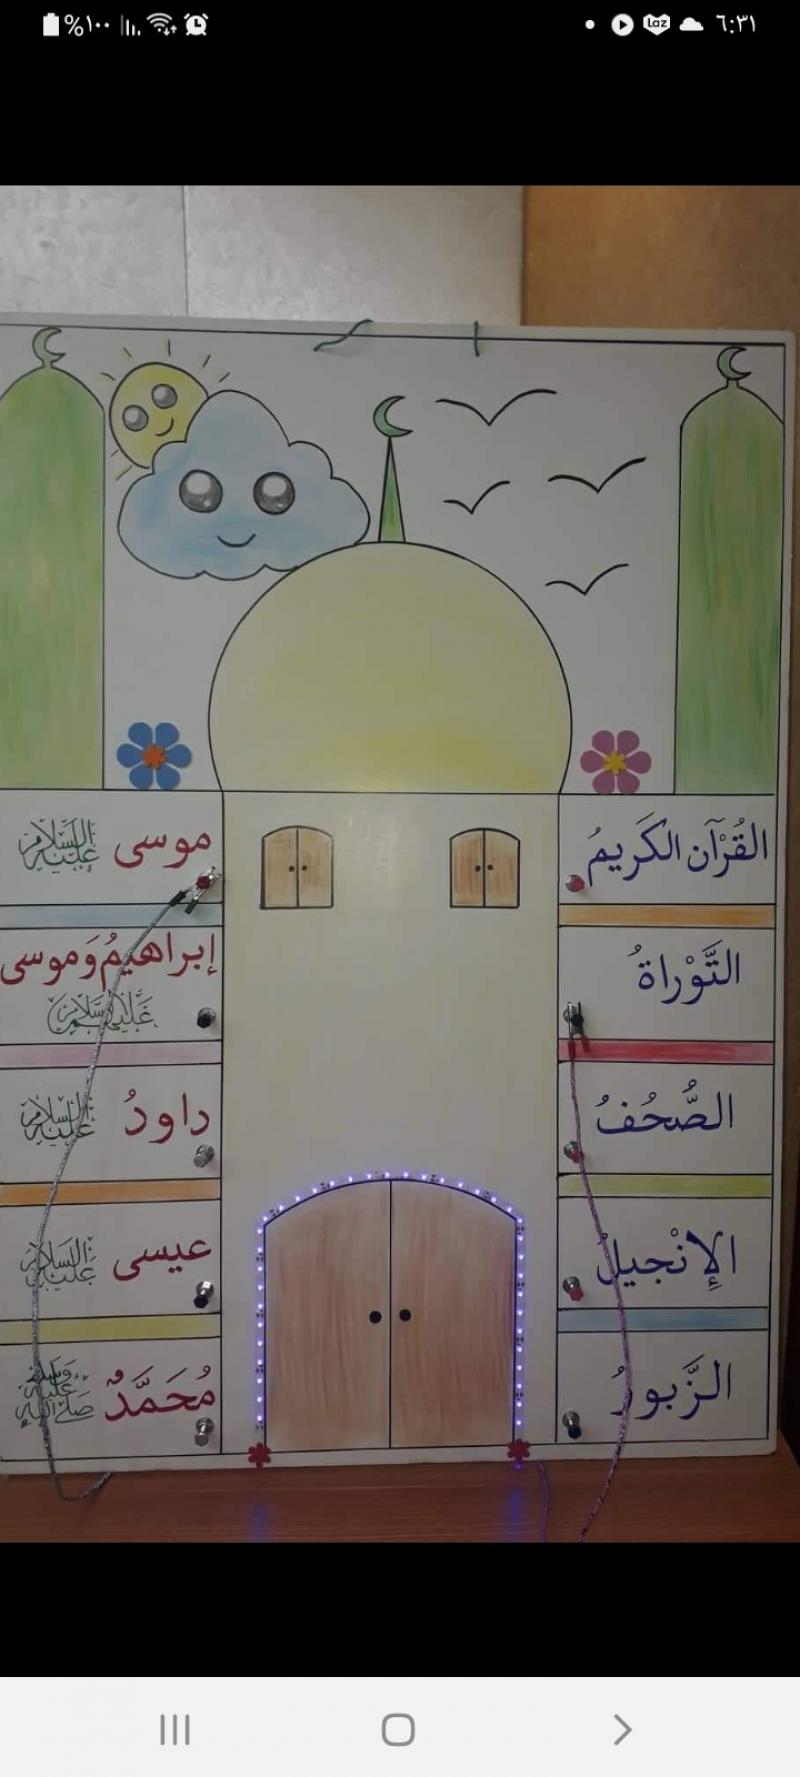 %١٠٠
Laz
٦:٣١
القُرْآن الكَريمُ
التَّوْراةُ
الصُّحُفُ
الإِنْجيلُ
الزَّبورُ
موسى عليه السلام
إبراهيمُ وَموسى
عَلَيْهِم السَّلام
داودُ عليه السلام
عيسى عليه السلام
مُحَمَّدٌ صلى الله عليه وسلم